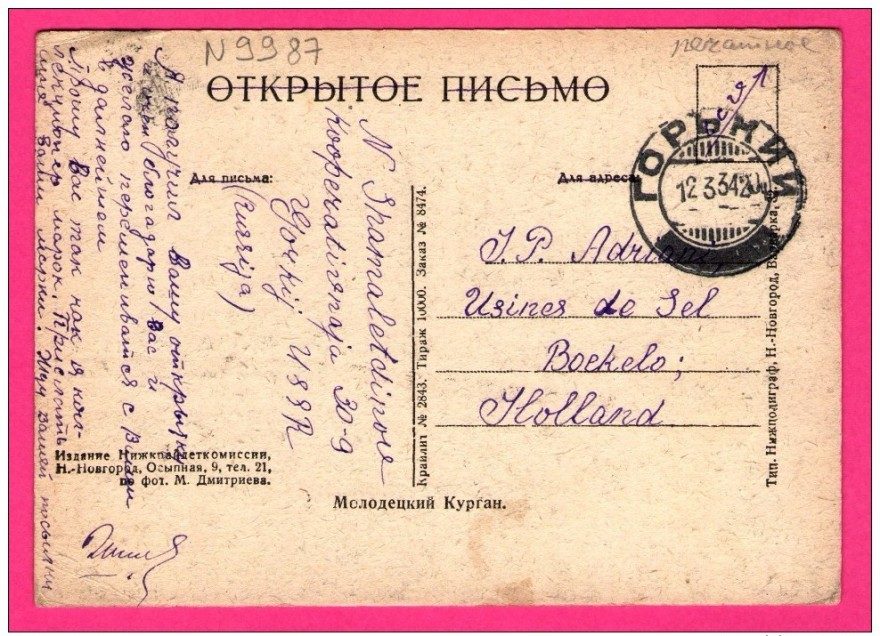 N 9987
печатное
ОТКРЫТОЕ ПИСЬМО
Для письма:
Для адреса:
ГОРЬКИЙ
12 3 34 20
Я получил Вашу открытку
благодарю Вас и
желаю переписываться с Вами
в дальнейшем
Прошу Вас так как я кол-
лекционер марок. Прислать
Ваши марки. Жду Вашей посылки
N
Kooperativnaja 30-9
Gorkij USSR
J. P. Adriani,
Usines de Sel
Boekelo;
Holland
Издание Нижкрайдеткомиссии,
Н.-Новгород, Осыпная, 9, тел. 21,
по фот. М. Дмитриева.
Молодецкий Курган.
Крайлит № 2843. Тираж 10000. Заказ № 8474.
Тип. Нижполиграф, Н.-Новгород,